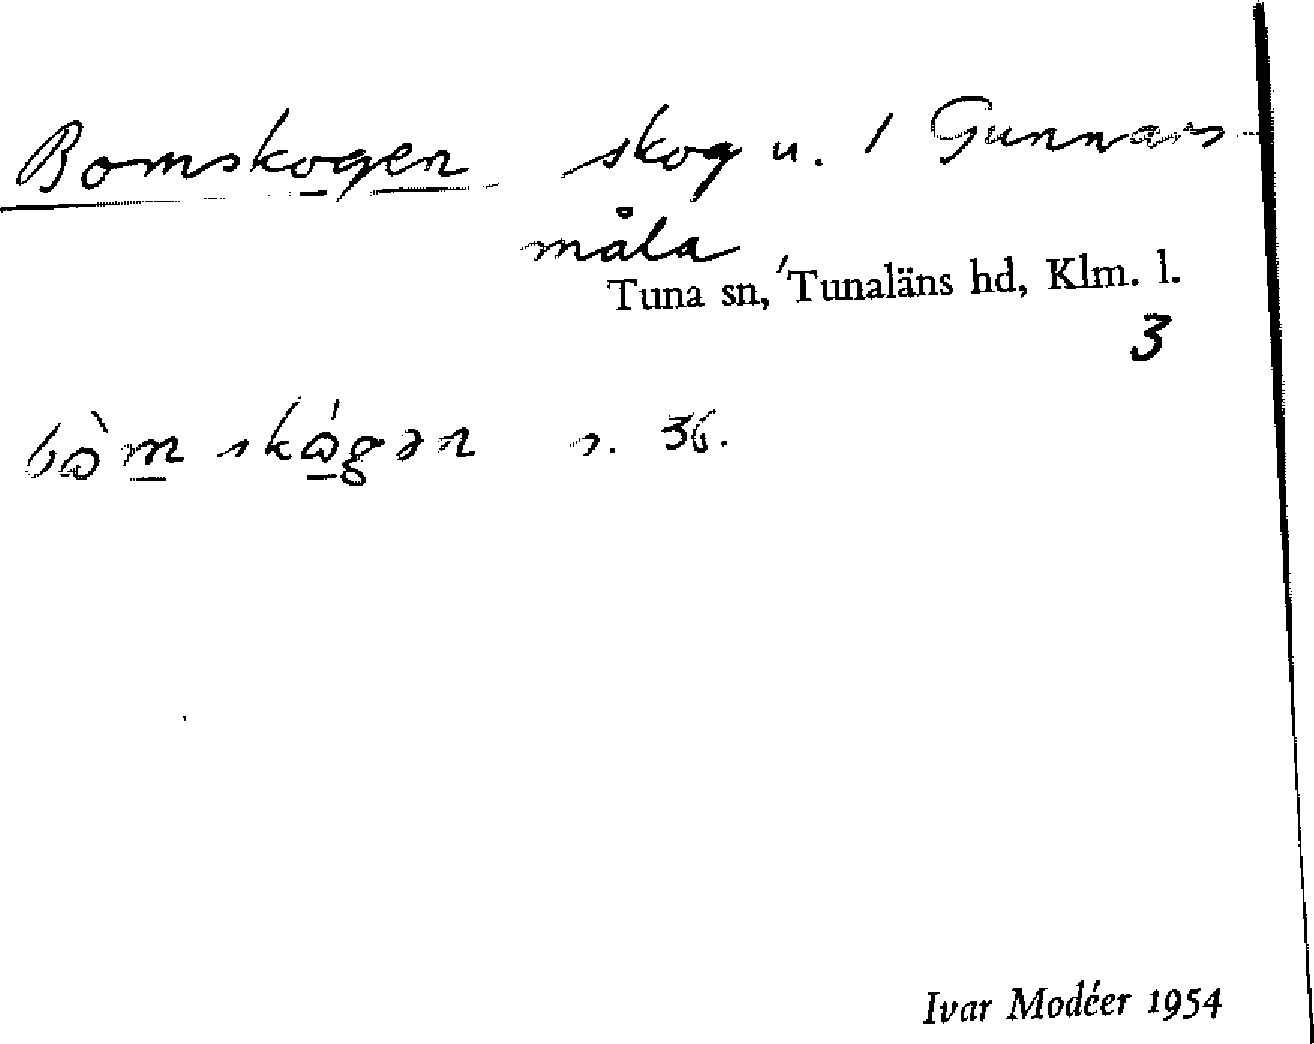 Bomskogen skog u. 1 Gunnars-
måla
Tuna sn, Tunaläns hd, Klm. l.
3
bòm skógən s. 36.
Ivar Modéer 1954